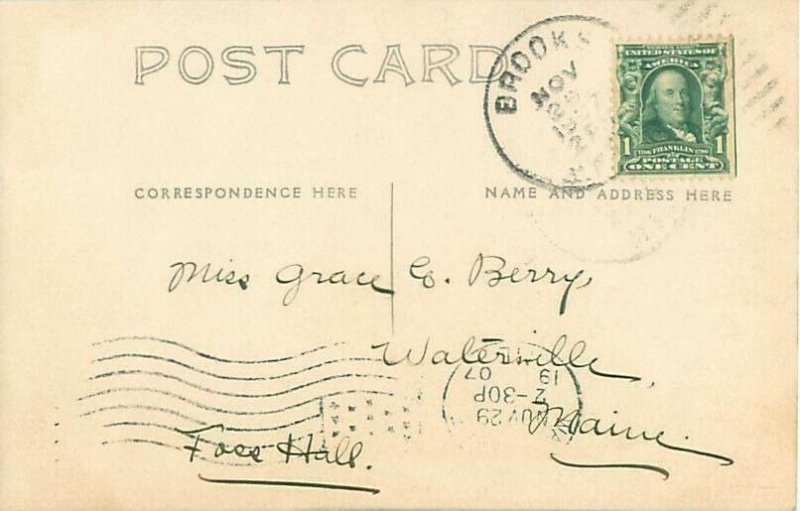 POST CARD
BROOK
NOV
SERIES 1902
UNITED STATES OF
AMERICA
1 FRANKLIN 1
POSTAGE
ONE CENT
CORRESPONDENCE HERE
NAME AND ADDRESS HERE
Miss Grace E. Berry,
Waterville,
Maine.
Foss Hall.
NOV 29
2-30P
19 07